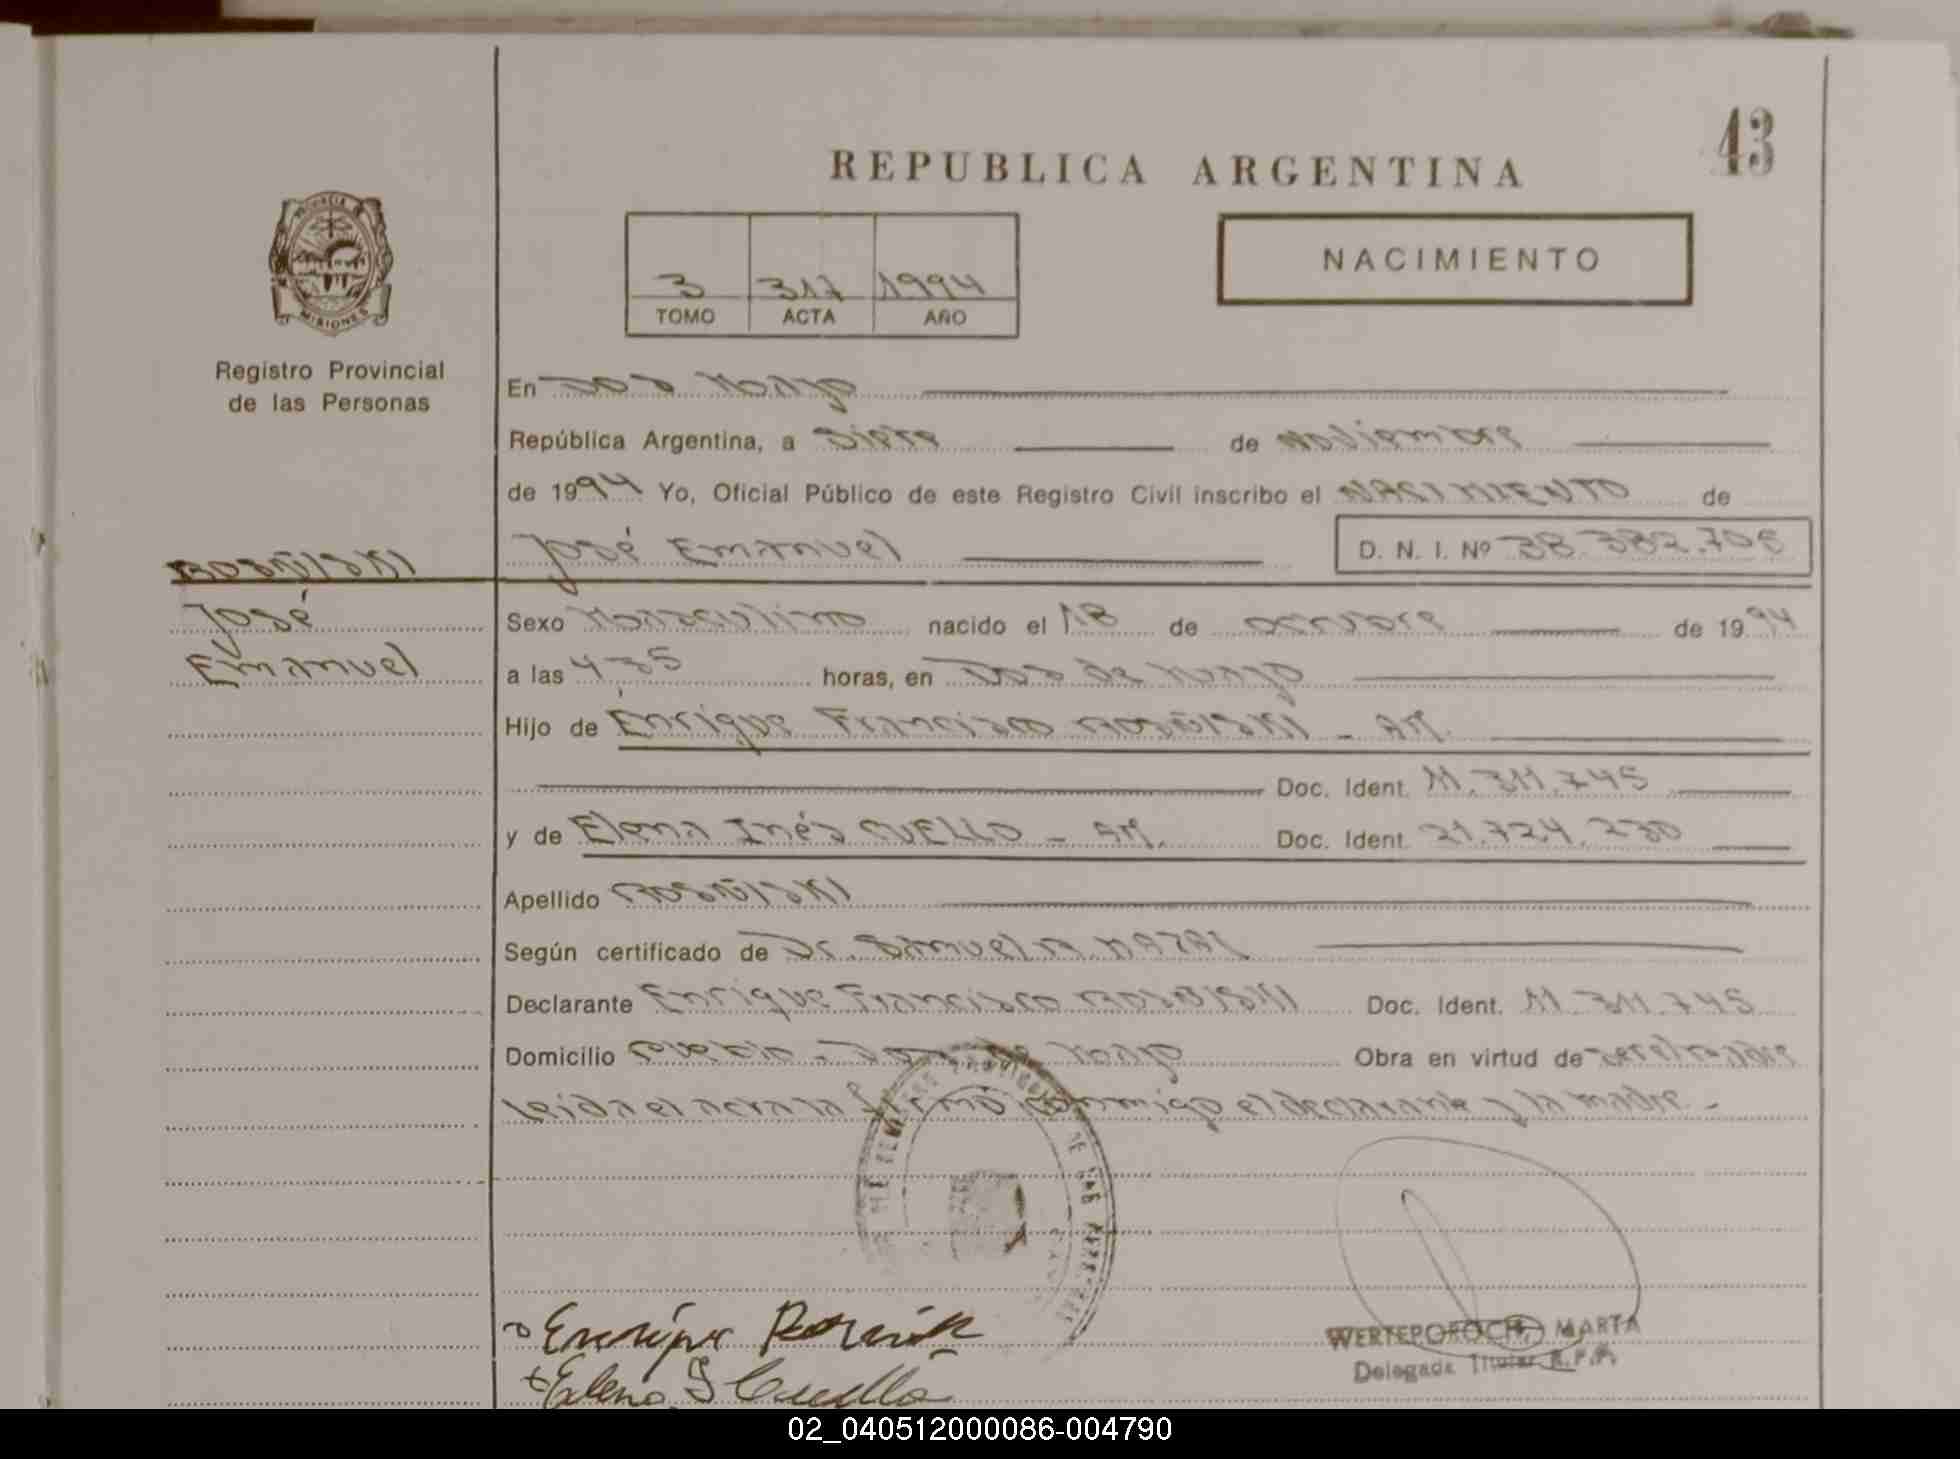 43
REPUBLICA ARGENTINA
PROVINCIA DE
MISIONES
3 317 1994
TOMO ACTA AÑO
NACIMIENTO
Registro Provincial
de las Personas
En Dos
República Argentina, a siete de noviembre
de 1994 Yo, Oficial Público de este Registro Civil inscribo el NACIMIENTO de
José Emanuel D. N. I. Nº 38.382.706
José
Emanuel
Sexo Masculino nacido el 18 de octubre de 1994
a las 4,35 horas, en Dos de Mayo
Hijo de Enrique Francisco - Ar.
Doc. Ident. 11.311.745
y de Elena Inés CUELLO - Ar. Doc. Ident. 21.724.230
Apellido
Según certificado de Dr. Samuel
Declarante Enrique Francisco Doc. Ident. 11.311.745
Domicilio Dos de Mayo Obra en virtud de
leida el acta la firma conmigo el declarante y la madre -
Enrique
Elena I Cuello
WERTEPOROCH, MARTA
Delegada Titular R.P.P.
02_040512000086-004790